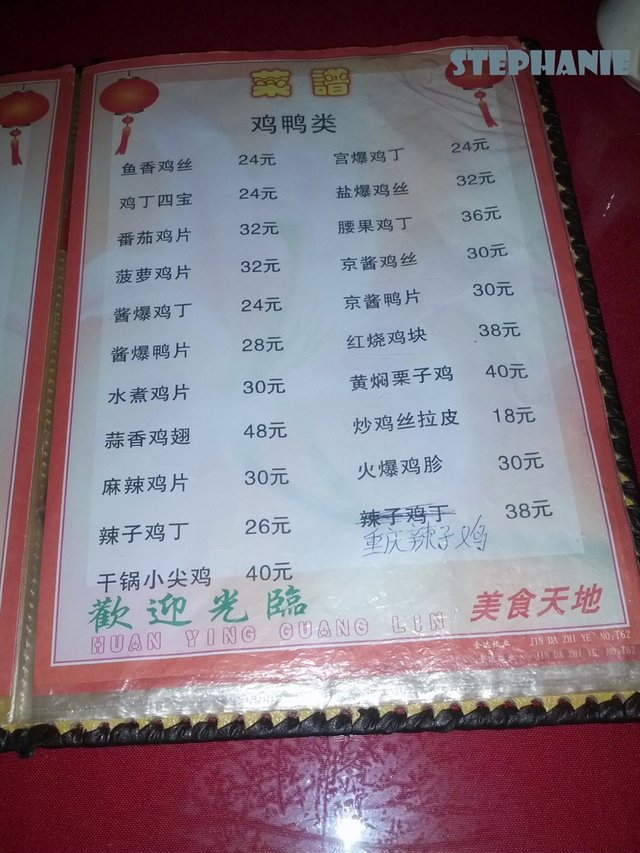 STEPHANIE
菜譜
鸡鸭类
鱼香鸡丝 24元 宫爆鸡丁 24元
鸡丁四宝 24元 盐爆鸡丝 32元
番茄鸡片 32元 腰果鸡丁 36元
菠萝鸡片 32元 京酱鸡丝 30元
酱爆鸡丁 24元 京酱鸭片 30元
酱爆鸭片 28元 红烧鸡块 38元
水煮鸡片 30元 黄焖栗子鸡 40元
蒜香鸡翅 48元 炒鸡丝拉皮 18元
麻辣鸡片 30元 火爆鸡胗 30元
辣子鸡丁 26元 辣子鸡丁 38元
重庆辣子鸡
干锅小尖鸡 40元
歡迎光臨 美食天地
HUAN YING GUANG LIN
JIN DA ZHI YE NO:T62
JIN DA ZHI YE NO:T62